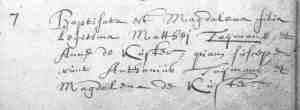 7 Baptisata est Magdalena filia
legitima Matthei Taijmans et
Anne de Küster quam suscep
erunt Anthonius Taijmans et
Magdalena de Küster